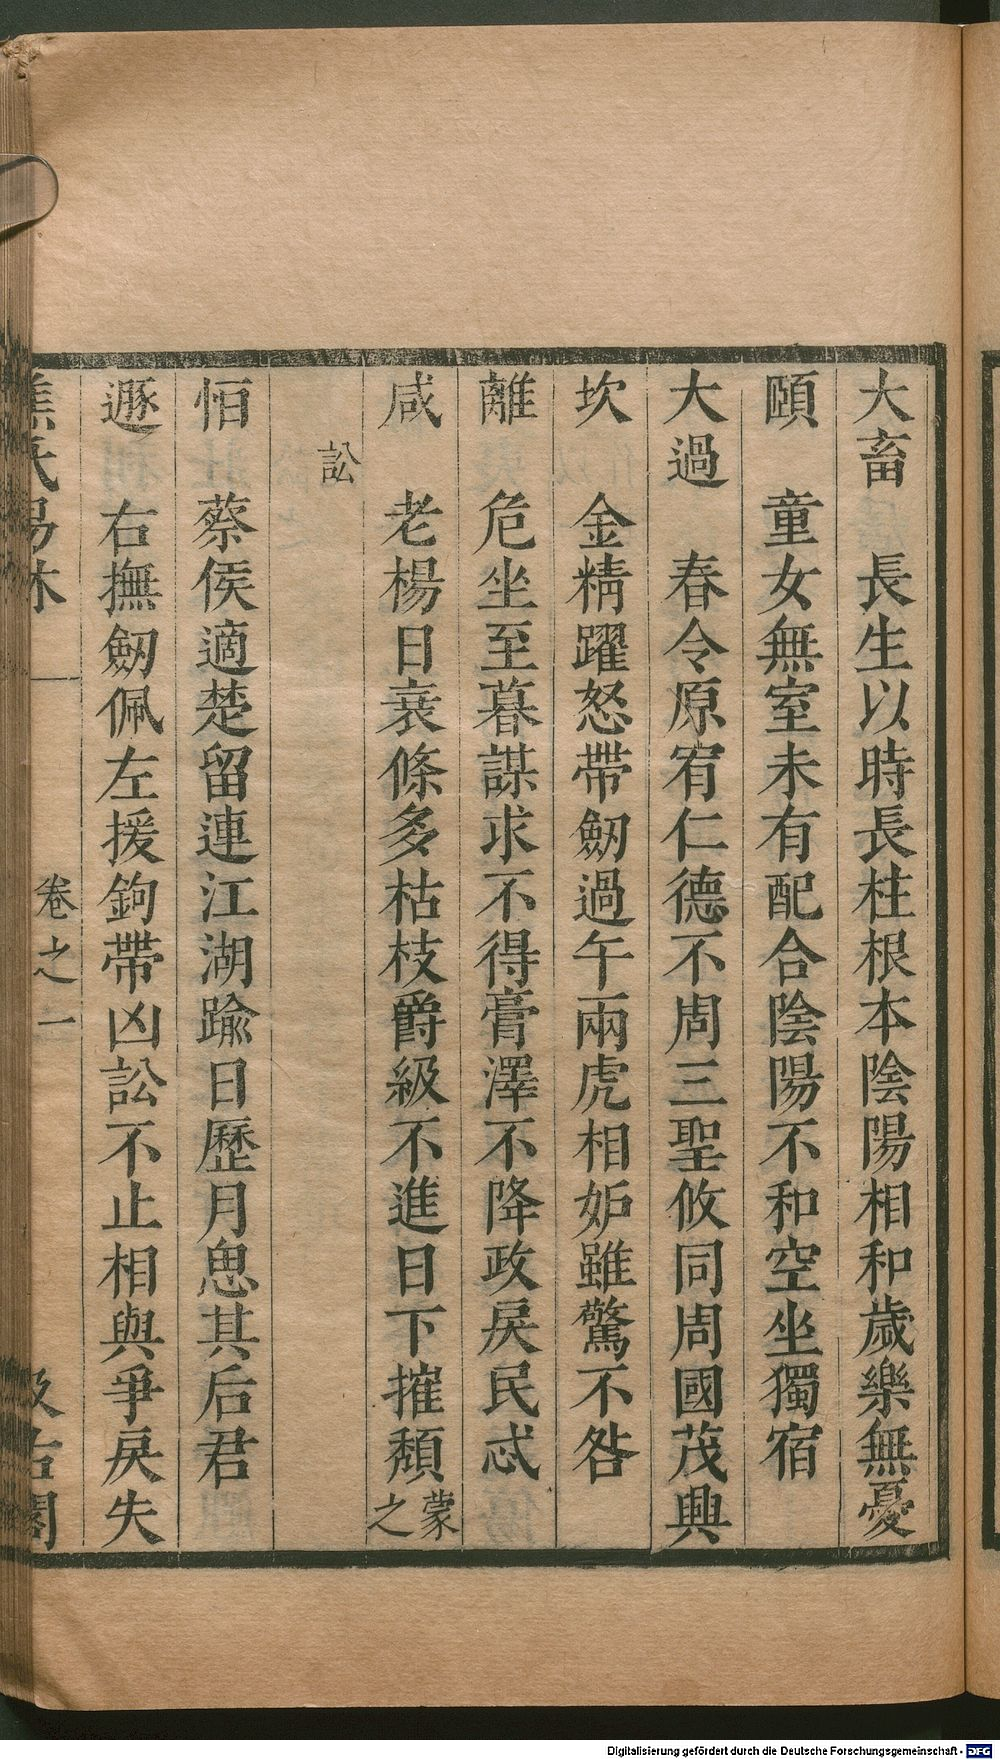 大畜 長生以時長柱根本陰陽相和歲樂無憂
頤 童女無室未有配合陰陽不和空坐獨宿
大過 春令原宥仁德不周三聖攸同周國茂興
坎 金精躍怒帶劒過午兩虎相妒雖驚不咎
離 危坐至暮謀求不得膏澤不降政戾民忒
咸 老楊日衰條多枯枝爵級不進日下摧頹蒙之
訟
恒 蔡侯適楚留連江湖踰日歷月思其后君
遯 右撫劒佩左援鉤帶凶訟不止相與爭戾失
焦氏易林 卷之一 汲古閣
Digitalisierung gefördert durch die Deutsche Forschungsgemeinschaft - DFG